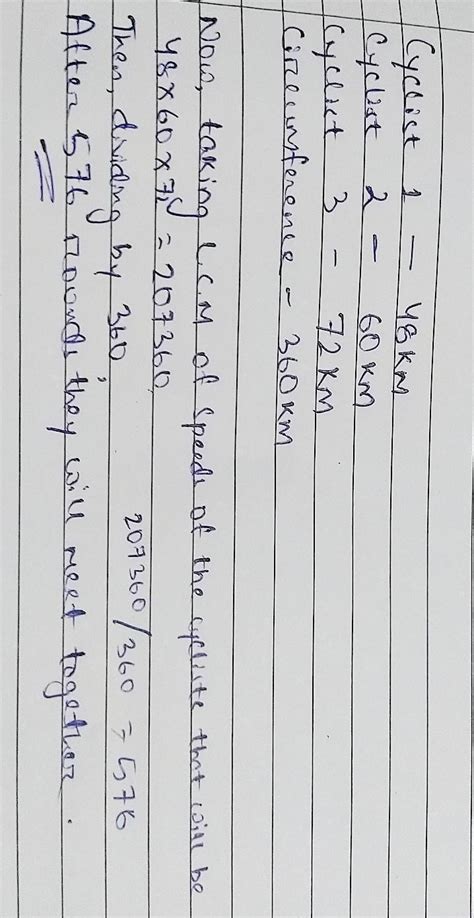 Cyclist 1 — 48 KM
Cyclist 2 - 60 KM
Cyclist 3 - 72 KM
Circumference - 360 KM
Now, taking L.C.M of speeds of the cyclists that will be
48 x 60 x 72 = 207360
Then, dividing by 360, 207360/360 = 576
After 576 rounds they will meet together.